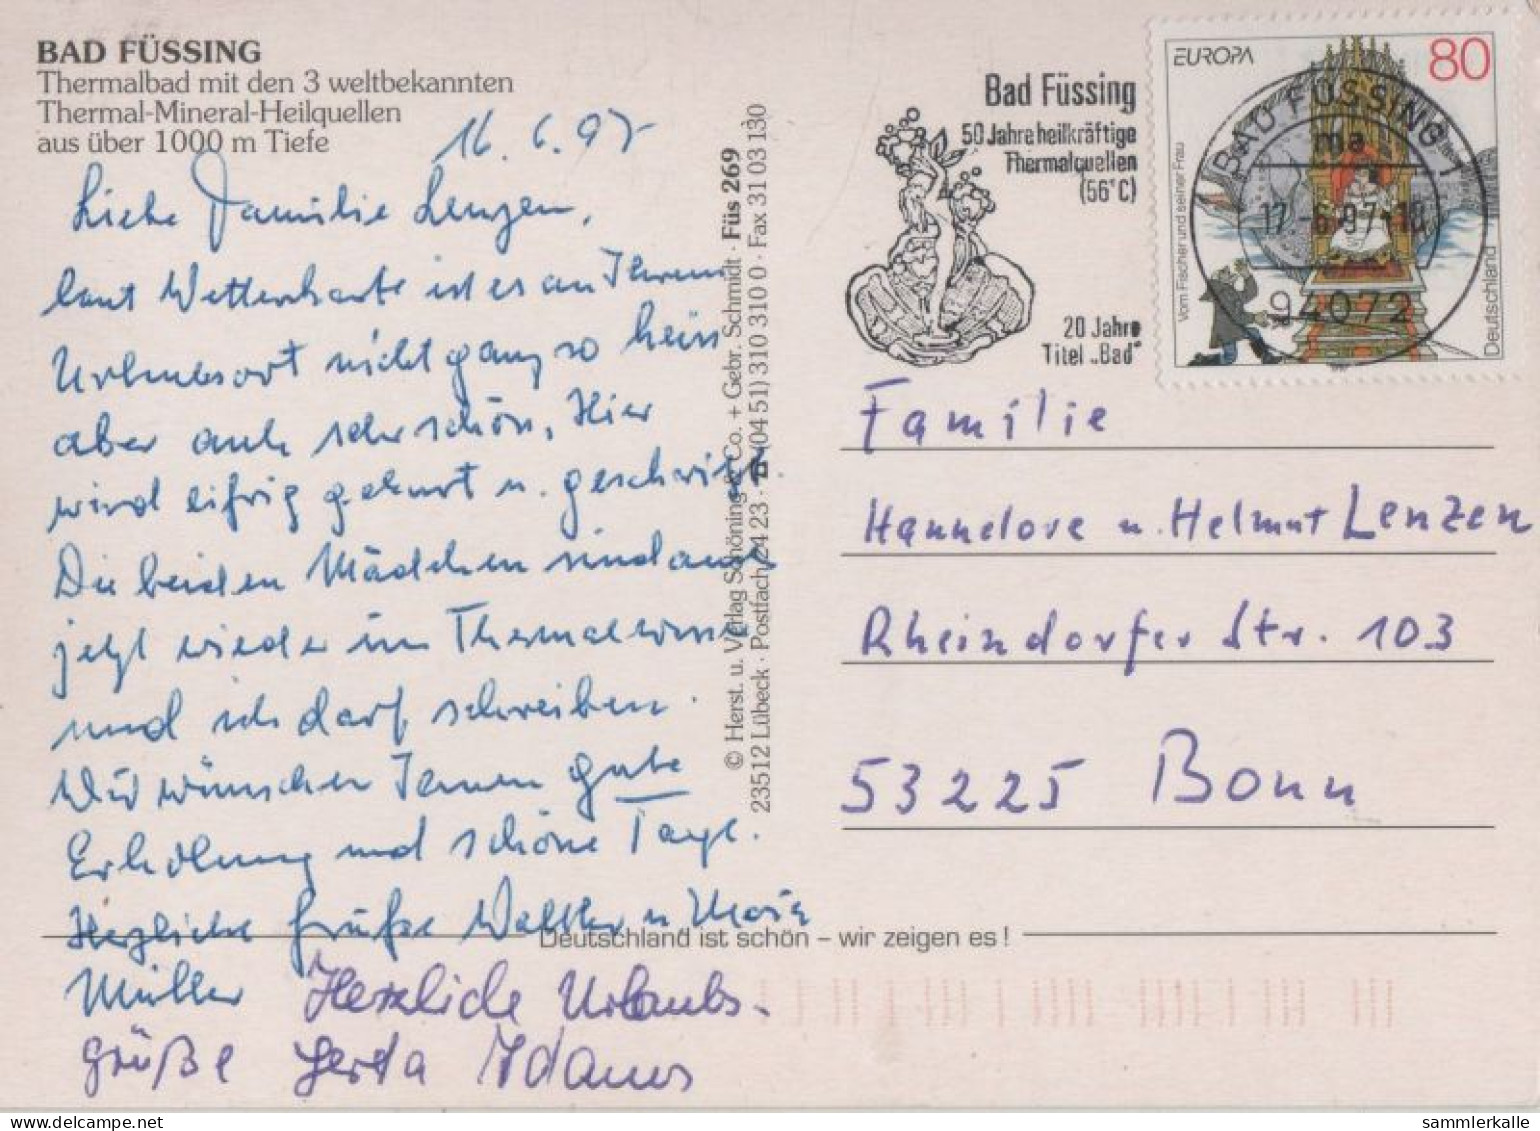 BAD FÜSSING
Thermalbad mit den 3 weltbekannten
Thermal-Mineral-Heilquellen
aus über 1000 m Tiefe
16. 6. 97
Liebe Familie Lenzen,
laut Wetterkarte ist es an Ihrem
Urlaubsort nicht ganz so heiß
aber auch sehr schön. Hier
wird eifrig gekurt u. geschwitzt.
Die beiden Mädchen sind auch
jetzt wieder im Thermalwasser
und ich darf schreiben.
Wir wünschen Ihnen gute
Erholung und schöne Tage.
Herzliche Grüße Walter u Maria
Müller Herzliche Urlaubs-
grüße Gerda Adams
© Herst. u. Verlag Schöning & Co. + Gebr. Schmidt · Füs 269
23512 Lübeck · Postfach 24 23 · (04 51) 310 310 0 · Fax 31 03 130
Bad Füssing
50 Jahre heilkräftige
Thermalquellen
(56°C)
20 Jahre
Titel „Bad"
EUROPA
80
Vom Fischer und seiner Frau
Deutschland
BAD FÜSSING 1
ma
17.-6.97-10
94072
Familie
Hannelore u. Helmut Lenzen
Rheindorfer Str. 103
53225 Bonn
Deutschland ist schön – wir zeigen es!
sammlerkalle